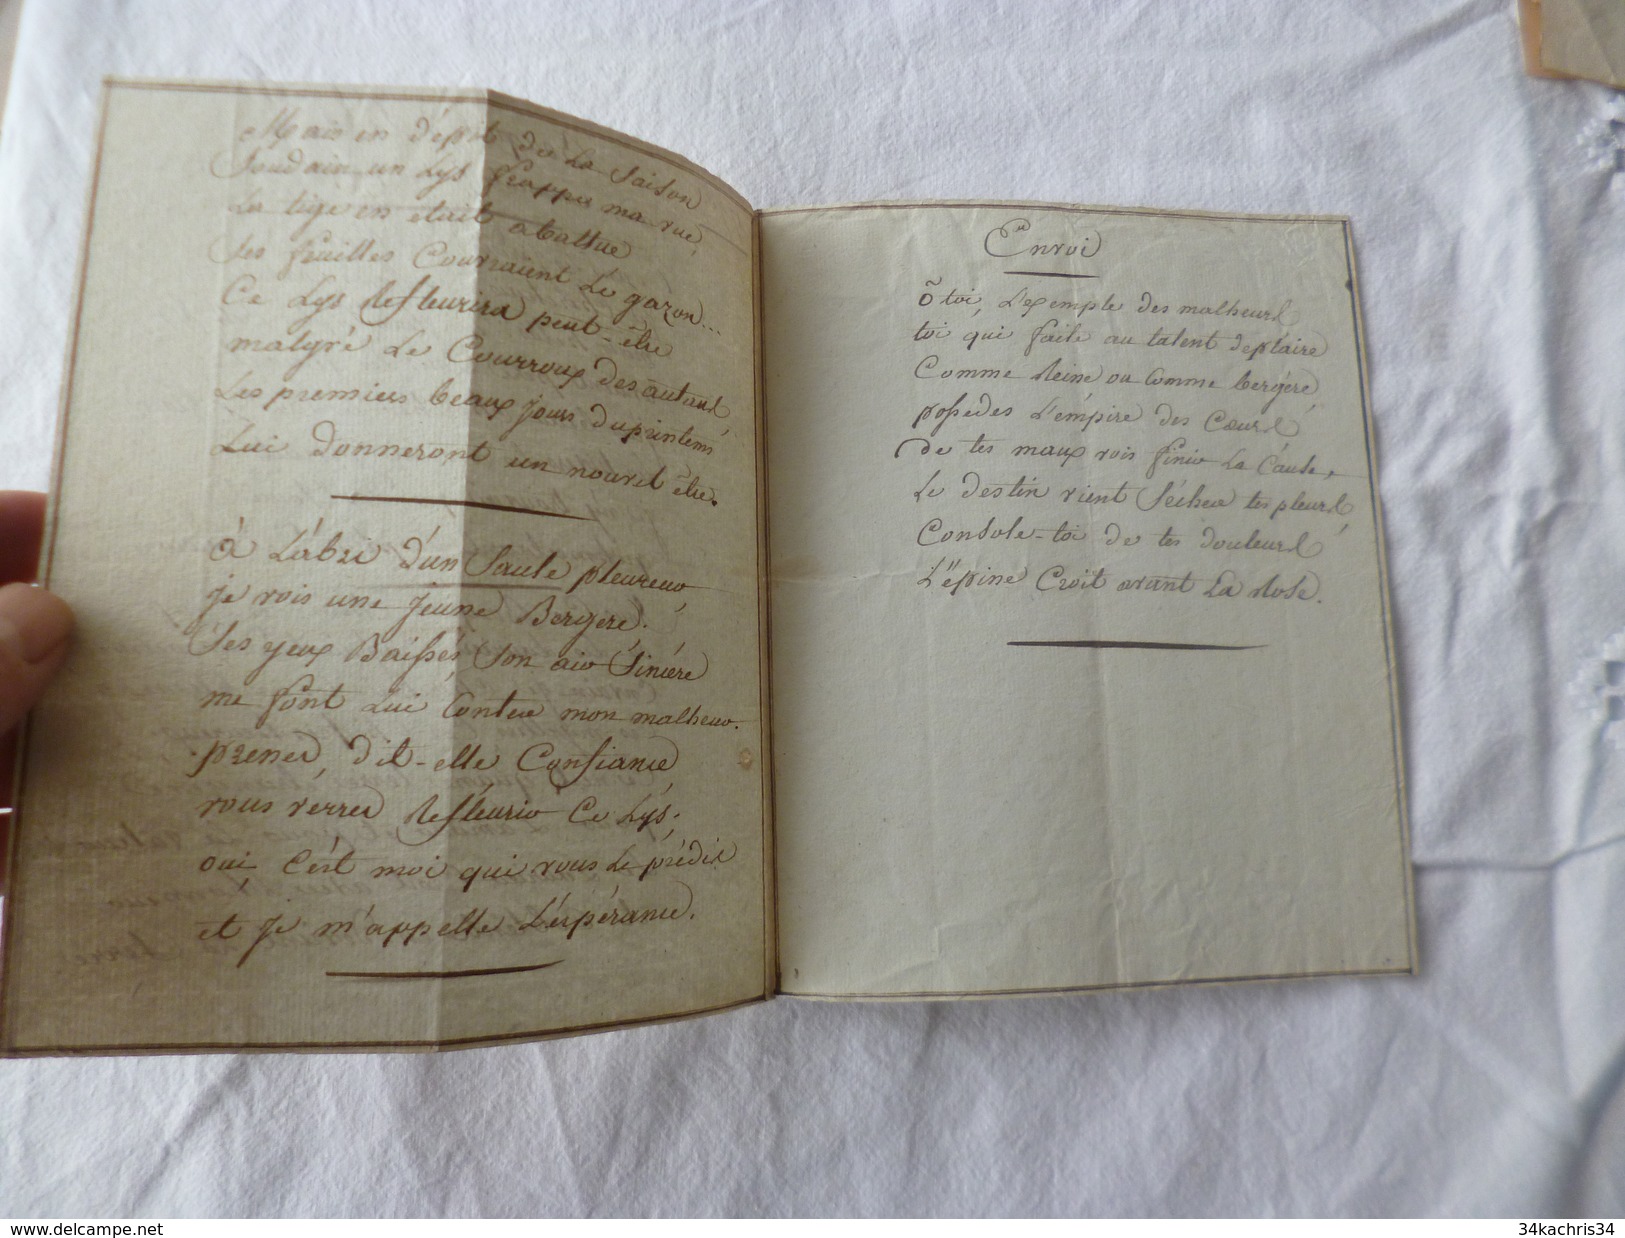 Mais en dépit de La Saison
Soudain un Lys frappe ma vue,
La tige en était abattue
Ses feuilles Couvraient Le gazon...
Ce Lys Refleurira peut-être
malgré Le Courroux des autans,
Les premiers beaux jours du printems
Lui donneront un nouvel être.
à L'abri d'un Saule pleureur,
je vois une jeune Bergere.
Ses yeux Baissés, Son air Sincére
me font Lui Conter mon malheur.
prenez, dit-elle Confiance,
vous verrez Refleurir Ce Lys.
oui, C'est moi qui vous Le prédis
et je m'appelle L'éspérance.
Envoi
ô toi, L'exemple des malheurs,
toi qui faite au talent de plaire
Comme Reine ou Comme bergère,
possedes L'émpire des Cœurs
de tes maux vois finir La Cause,
Le destin vient Sécher tes pleurs,
Console-toi de tes douleurs,
L'épine Croit avant La Rose.
delcampe.net
34kachris34